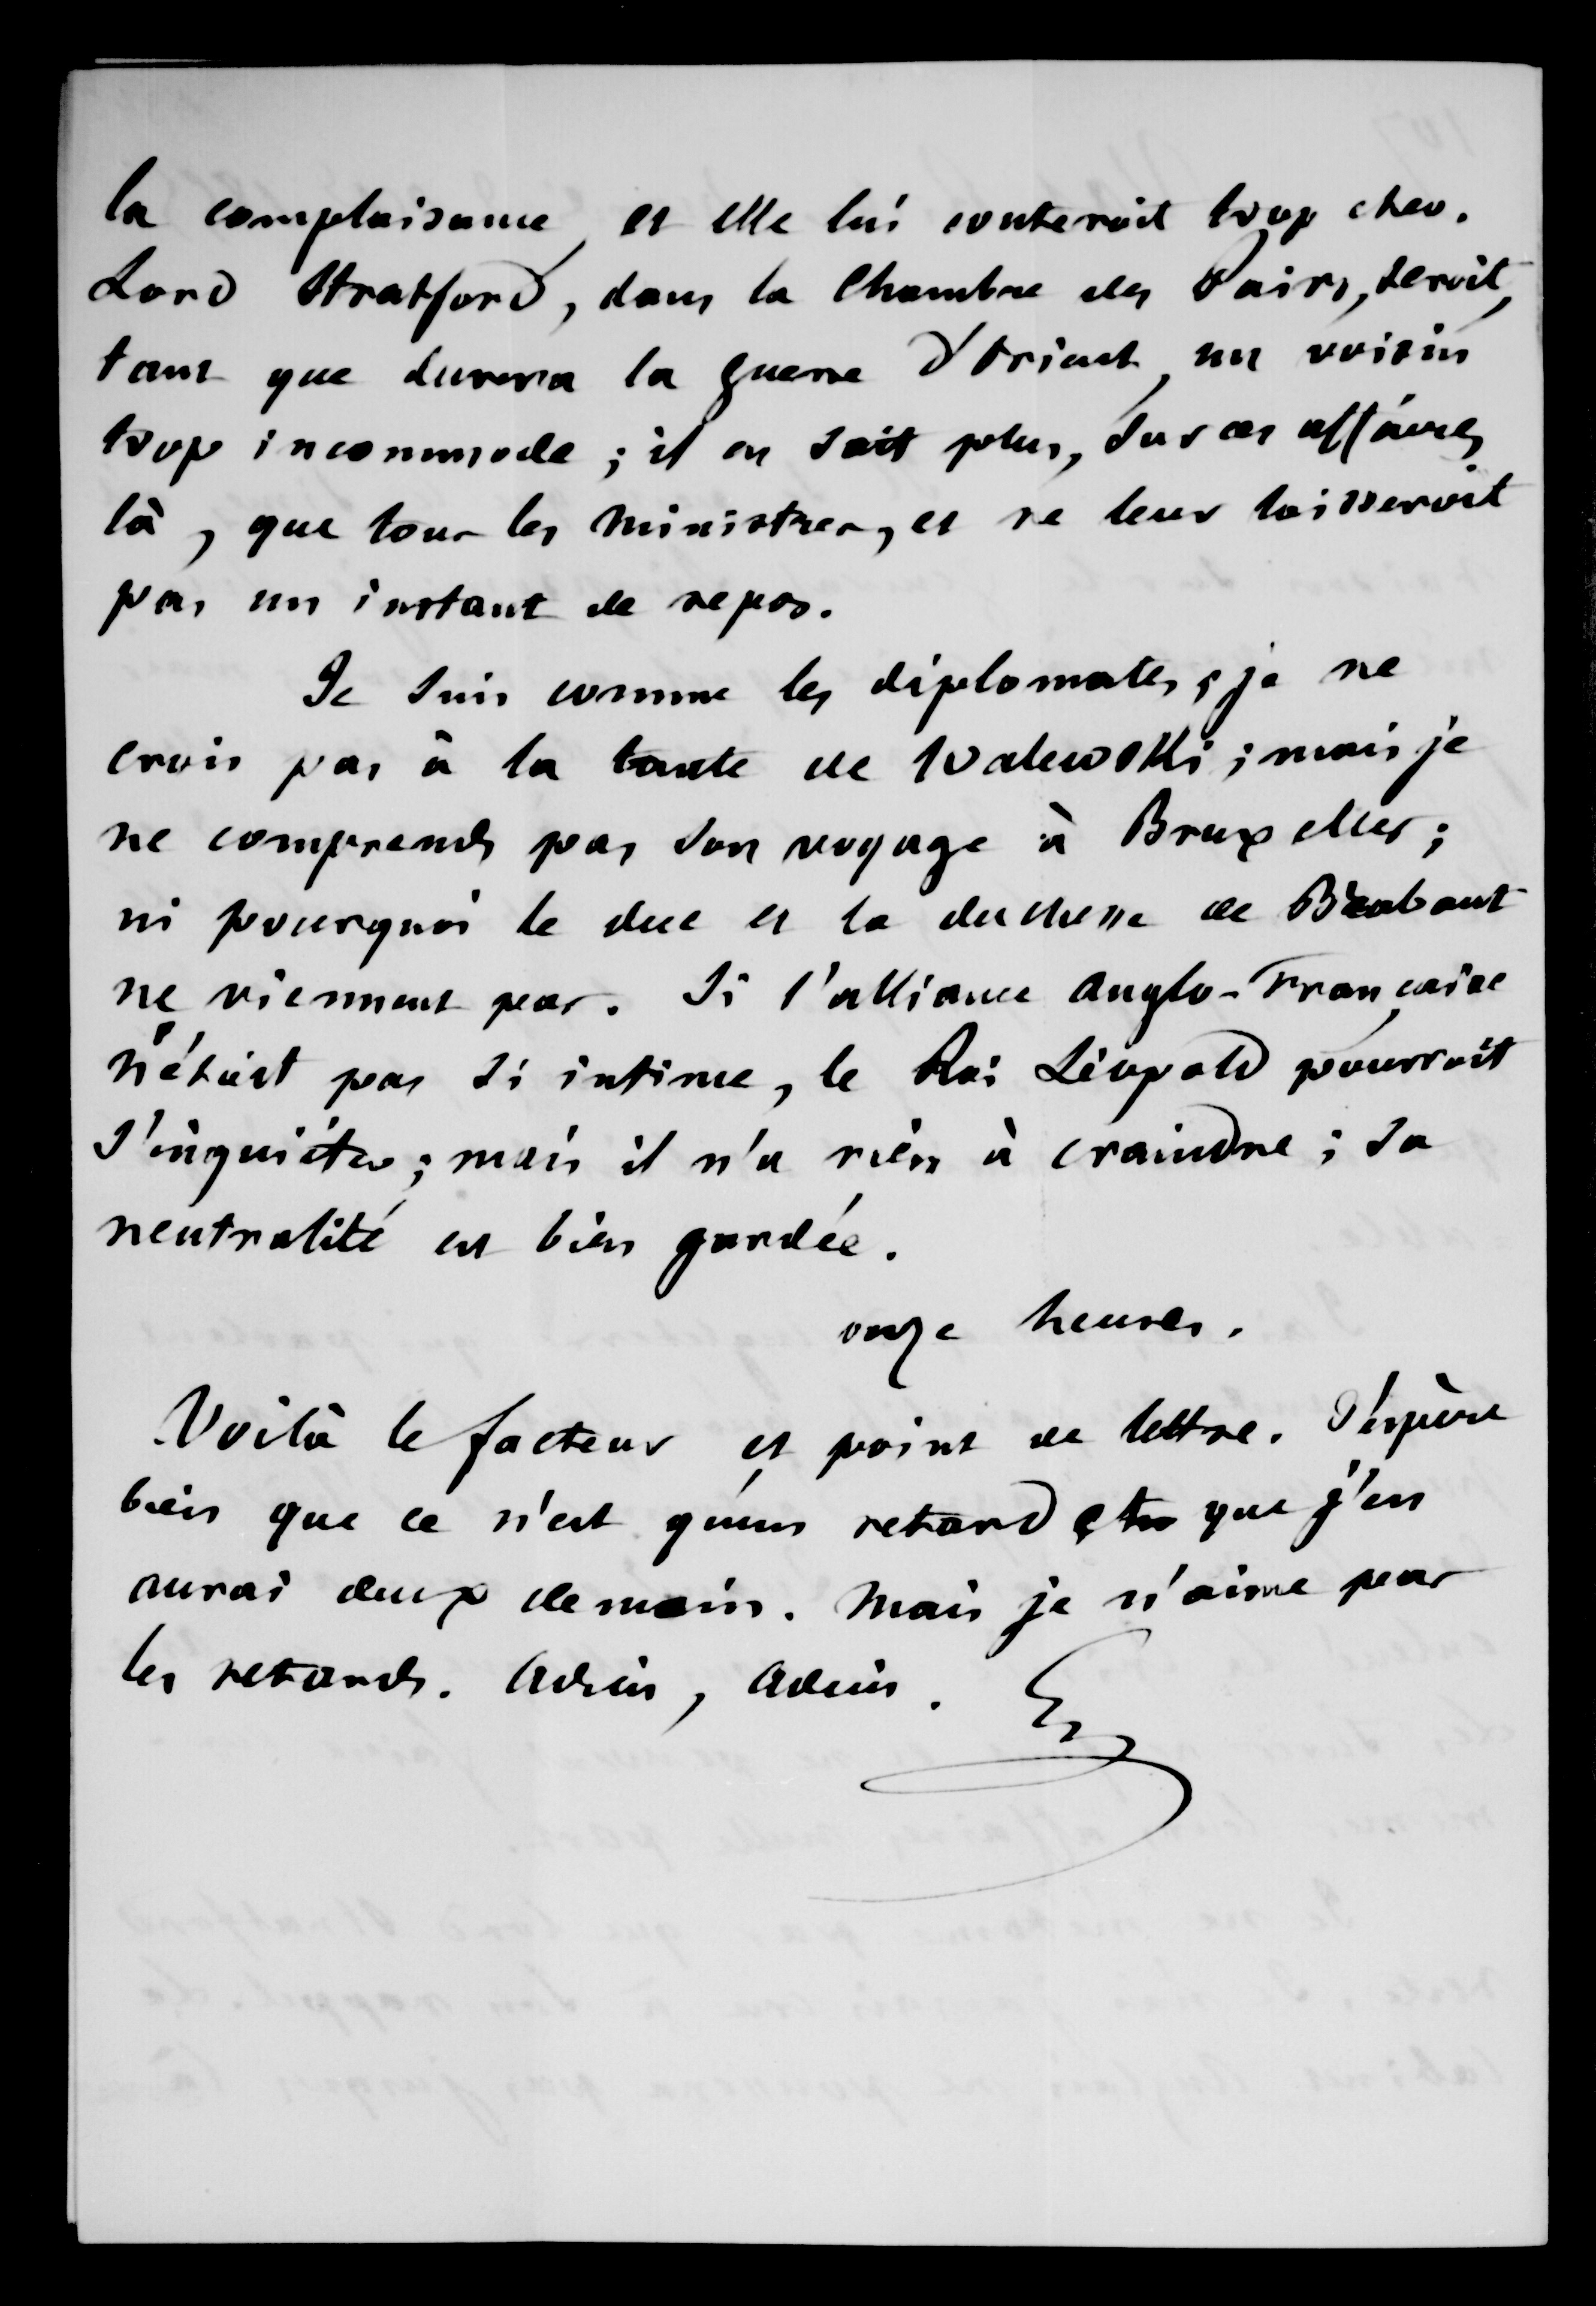 la complaisance, et elle lui couteroit trop cher.
Lord Stratford, dans la Chambre des Pairs, seroit,
tant que durera la guerre d'Orient, un voisin
trop incommode ; il en sait plus, sur ces affaires
là, que tous les Ministres, et ne leur laisseroit
pas un instant de repos.
Je suis comme les diplomates ; je ne
crois pas à la tante de Walewski ; mais je
ne comprends pas son voyage à Bruxelles ;
ni pourquoi le duc et la duchesse de Brabant
ne viennent pas. Si l'alliance Anglo-Française
n'étoit pas si intime, le Roi Léopold pourroit
s'inquiéter ; mais il n'a rien à craindre ; sa
neutralité est bien gardée.
onze heures.
Voilà le facteur et point de lettre. J'espère
bien que ce n'est qu'un retard et que j'en
aurai deux demain. Mais je n'aime pas
les retards. Adieu, Adieu.